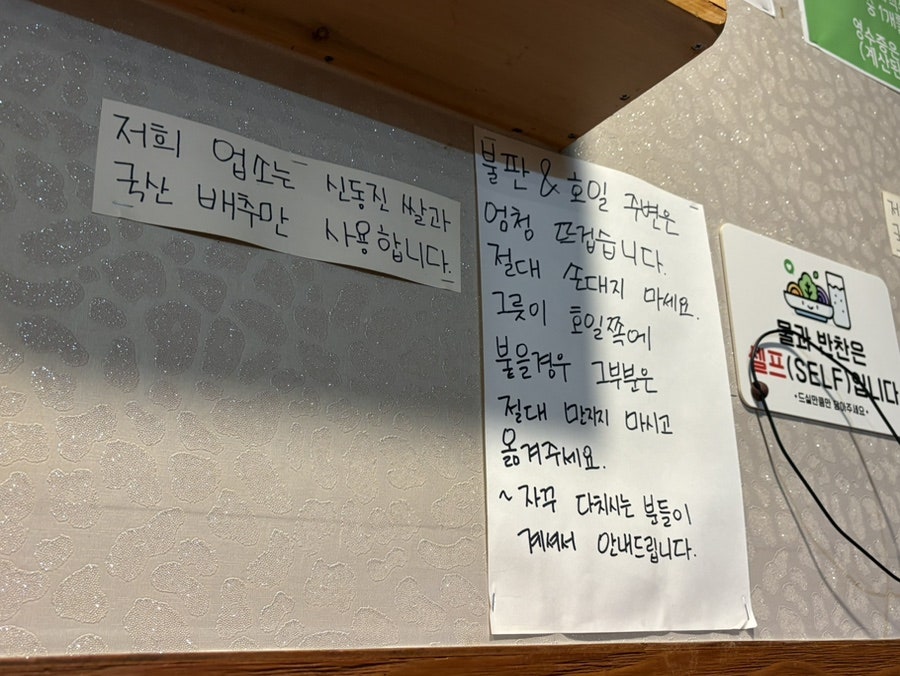 저희 업소는 신동진 쌀과
국산 배추만 사용합니다.
불판 & 호일 주변은
엄청 뜨겁습니다.
절대 손대지 마세요.
그릇이 호일쪽에
붙을경우 그부분은
절대 만지지 마시고
옮겨주세요.
~ 자꾸 다치시는 분들이
계셔서 안내드립니다.
물과 반찬은
셀프(SELF)입니다
•드실만큼만 담아주세요•
영수증은